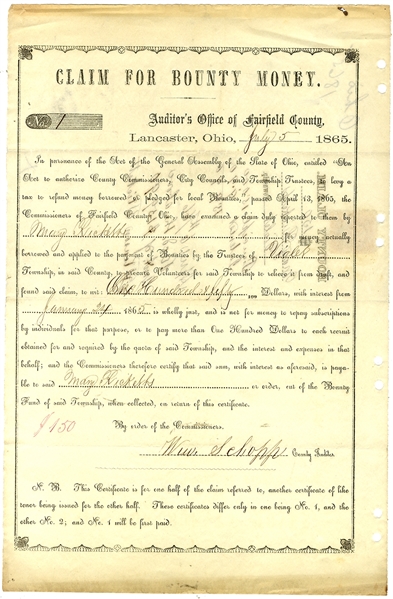 CLAIM FOR BOUNTY MONEY.
No. 1
Auditor's Office of Fairfield County,
Lancaster, Ohio, July 5 1865.
In pursuance of the Act of the General Assembly of the State of Ohio, entitled "An
Act to authorize County Commissioners, City Councils, and Township Trustees, to levy a
tax to refund money borrowed or pledged for local Bounties," passed April 13, 1865, the
Commissioners of Fairfield County, Ohio, have examined a claim duly reported to them by
Mary Ricketts for money actually
borrowed and applied to the payment of Bounties by the Trustees of
Township, in said County, to procure Volunteers for said Township to relieve it from draft, and
found said claim, to wit: One Hundred & fifty /100 Dollars, with interest from
January 24 1865 is wholly just, and is not for money to repay subscriptions
by individuals for that purpose, or to pay more than One Hundred Dollars to each recruit
obtained for and required by the quota of said Township, and the interest and expenses in that
behalf; and the Commissioners therefore certify that said sum, with interest as aforesaid, is paya-
ble to said Mary Ricketts or order, out of the Bounty
Fund of said Township, when collected, on return of this certificate.
$150
By order of the Commissioners.
Wm. Schopp County Auditor.
N. B. This Certificate is for one half of the claim referred to, another certificate of like
tenor being issued for the other half. These certificates differ only in one being No. 1, and
the other No. 2; and No. 1 will be first paid.